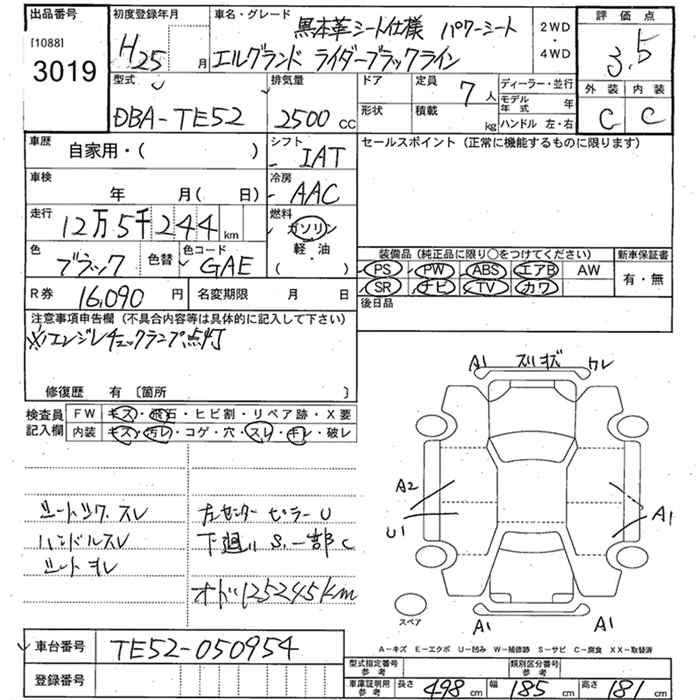 出品番号 初度登録年月 車名・グレード 黒本革シート仕様 パワーシート 2WD 評価点
[1088] 3019 H25 月 エルグランド ライダーブラックライン 4WD 3.5
型式 排気量 ドア 定員 7人 ディーラー・並行 外装 内装
DBA-TE52 2500cc 形状 積載 kg モデル年式 年 C C
ハンドル 左・右
車歴 自家用・( ) シフト IAT セールスポイント(正常に機能するものに限ります)
車検 年 月(日) 冷房 AAC
走行 12万5千244km 燃料 ガソリン
軽・油
色 ブラック 色替 色コード GAE ( )
装備品(純正品に限り○をつけてください) 新車保証書
PS PW ABS エアB AW 有・無
SR ナビ TV カワ
R券 16,090円 名変期限 月 日 後日品
注意事項申告欄(不具合内容等は具体的に記入して下さい)
※エンジンチェックランプ点灯
修復歴 有〔箇所 〕
検査員記入欄 FW キズ・飛石・ヒビ割・リペア跡・X要
内装 キズ・汚レ・コゲ・穴・スレ・キレ・破レ
A1 スリキズ ワレ
A2
U1
A1
シートツケ スレ 左センターピラーU
ハンドルスレ 下廻りS.一部C
シートヨレ
オド125245km
スペア A1 A1
A-キズ E-エクボ U-凹み W-補修跡 S-サビ C-腐食 XX-取替済
車台番号 TE52-050954
登録番号
型式指定番号 参考 類別区分番号 参考
車庫証明用 参考 長さ 498cm 幅 185cm 高さ 181cm